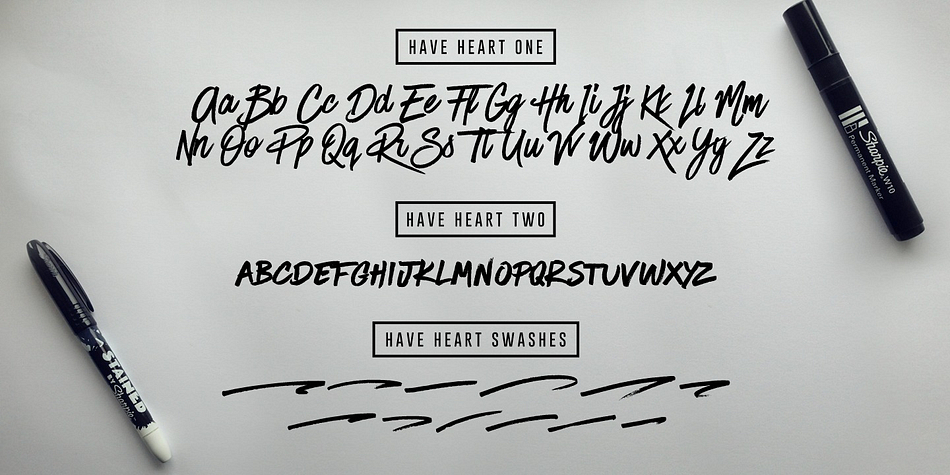 HAVE HEART ONE
Aa Bb Cc Dd Ee Ff Gg Hh Ii Jj Kk Ll Mm
Nn Oo Pp Qq Rr Ss Tt Uu Vv Ww Xx Yy Zz
HAVE HEART TWO
ABCDEFGHIJKLMNOPQRSTUVWXYZ
HAVE HEART SWASHES
Sharpie W10
Permanent Marker
STAINED
BY Sharpie